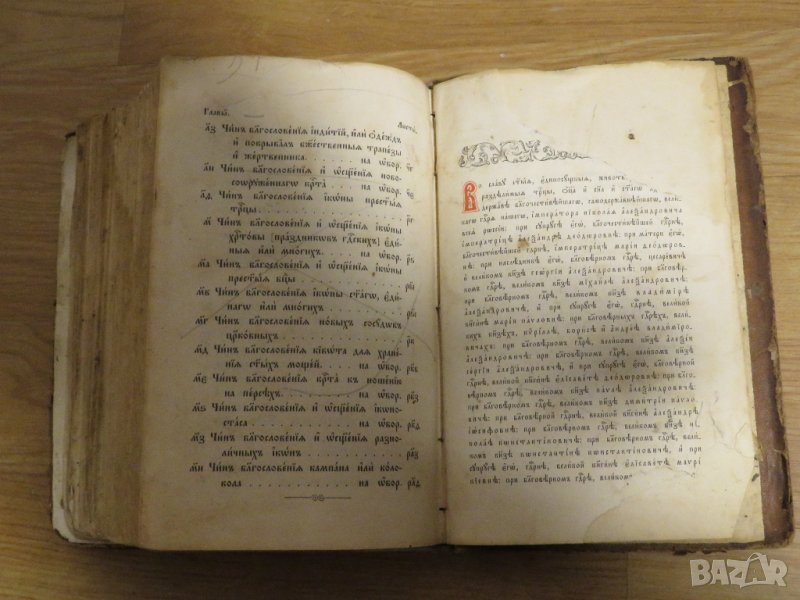 Главы̀. Листъ̀.
л҃з Чи́нъ бл҃гослове́нїѧ і҆ндїті́й, и҆лѝ ѻ҆де́ждъ
и҆ покрыва́лъ бж҃е́ственныѧ трапе́зы
и҆ же́ртвенника. на ѻ҆бор.
л҃и Чи́нъ бл҃гослове́нїѧ и҆ ѡ҆сщ҃е́нїѧ ново-
сооруже́ннагѡ крⷭ҇та̀. на ѻ҆бор.
л҃ѳ Чи́нъ бл҃гослове́нїѧ і҆кѡ́ны прест҃ы́ѧ
трⷪ҇цы
м҃ Чи́нъ бл҃гослове́нїѧ и҆ ѡ҆сщ҃е́нїѧ і҆кѡ́ны
хрⷭ҇то́вы [пра́здникѡвъ гдⷭ҇кихъ] є҆ди́-
ныѧ и҆лѝ мно́гихъ. на ѻ҆бор.
м҃а Чи́нъ бл҃гослове́нїѧ и҆ ѡ҆сщ҃е́нїѧ і҆кѡ́ны
прест҃ы́ѧ бцⷣы
м҃в Чи́нъ бл҃гослове́нїѧ і҆кѡ́ны ст҃а́гѡ, є҆ди́-
нагѡ и҆лѝ мно́гихъ.
м҃г Чи́нъ бл҃гослове́нїѧ но́выхъ сосꙋ́дѡвъ
цр҃ко́вныхъ
м҃д Чи́нъ бл҃гослове́нїѧ кївѡ́та для хране́-
нїѧ ст҃ы́хъ моще́й. на ѻ҆бор.
м҃є Чи́нъ бл҃гослове́нїѧ крⷭ҇та̀ къ ноше́нїю
на пе́рсѣхъ. на ѻ҆бор.
м҃ѕ Чи́нъ бл҃гослове́нїѧ и҆ ѡ҆сщ҃е́нїѧ і҆коно-
ста́са на ѻ҆бор. рк҃д
м҃з Чи́нъ бл҃гослове́нїѧ и҆ ѡ҆сщ҃е́нїѧ разно-
ли́чныхъ і҆кѡ́нъ. на ѻ҆бор.
м҃и Чи́нъ бл҃гослове́нїѧ кампа́на и҆лѝ ко́ло-
кола на ѻ҆бор.
Во сла́вꙋ ст҃ы́ѧ, є҆диносꙋ́щныѧ, живот
разди́льныѧ трⷪ҇цы, ѻ҆ц҃а̀ и҆ сн҃а и҆ ст҃а́гѡ
держа́вѣ бл҃гочести́вѣйшагѡ, самодержа́внѣйшагѡ, вели́-
кагѡ гдⷭ҇рѧ на́шегѡ, і҆мпера́тора нїкола́ѧ а҆леѯа́ндровича
всеѧ̀ рѡссі́и: при сꙋпрꙋ́гѣ є҆гѡ̀, бл҃гочести́вѣйшей гдⷭ҇рнѣ,
і҆мператри́цѣ а҆леѯа́ндрѣ ѳео́дѡровнѣ: при ма́тери є҆гѡ̀,
бл҃гочести́вѣйшей гдⷭ҇рнѣ, і҆мператри́цѣ марі́и ѳео́дѡр-
овнѣ: при наслѣ́дникѣ є҆гѡ̀, бл҃говѣ́рномъ гдⷭ҇рѣ, цесаре́вичѣ
и҆ вели́комъ кн҃зѣ геѡ́ргїи а҆леѯа́ндровичѣ: при бл҃говѣ́рномъ
гдⷭ҇рѣ, вели́комъ кн҃зѣ мїхаи́лѣ а҆леѯа́ндровичѣ: при бл҃говѣ́рномъ
гдⷭ҇рѣ, вели́комъ кн҃зѣ влади́мїрѣ
а҆леѯа́ндровичѣ, и҆ при сꙋпрꙋ́гѣ є҆гѡ̀, бл҃говѣ́рной гдⷭ҇рнѣ, вели́кой
кн҃ги́нѣ марі́и па́ѵловнѣ: при бл҃говѣ́рныхъ гдⷭ҇рѣхъ, вели́-
кихъ кн҃зѣхъ, кѷрі́ллѣ, бори́сѣ и҆ а҆ндре́ѣ влади́мїро-
вичахъ: при бл҃говѣ́рномъ гдⷭ҇рѣ, вели́комъ кн҃зѣ а҆леѯі́и
а҆леѯа́ндровичѣ: при бл҃говѣ́рномъ гдⷭ҇рѣ, вели́комъ кн҃зѣ
се́ргїи а҆леѯа́ндровичѣ, и҆ при сꙋпрꙋ́гѣ є҆гѡ̀, бл҃говѣ́рной
гдⷭ҇рнѣ, вели́кой кн҃ги́нѣ є҆лїсаве́тѣ ѳео́дѡровнѣ: при бл҃го-
вѣ́рномъ гдⷭ҇рѣ, вели́комъ кн҃зѣ па́ѵлѣ а҆леѯа́ндровичѣ:
при бл҃говѣ́рномъ гдⷭ҇рѣ, вели́комъ кн҃зѣ дими́трїи па́ѵло-
вичѣ: при бл҃говѣ́рной гдⷭ҇рнѣ, вели́кой кн҃ги́нѣ а҆леѯа́ндрѣ
і҆ѡ́сифовнѣ: при бл҃говѣ́рномъ гдⷭ҇рѣ, вели́комъ кн҃зѣ нї-
кола́ѣ кѡнстанті́новичѣ: при бл҃говѣ́рномъ гдⷭ҇рѣ, вели́-
комъ кн҃зѣ кѡнстанті́нѣ кѡнстанті́новичѣ, и҆ при
сꙋпрꙋ́гѣ є҆гѡ̀, бл҃говѣ́рной гдⷭ҇рнѣ, вели́кой кн҃ги́нѣ є҆лїсаве́тѣ маѵрі́-
кїевнѣ: при бл҃говѣ́рномъ гдⷭ҇рѣ, вели́ком
BAZAR